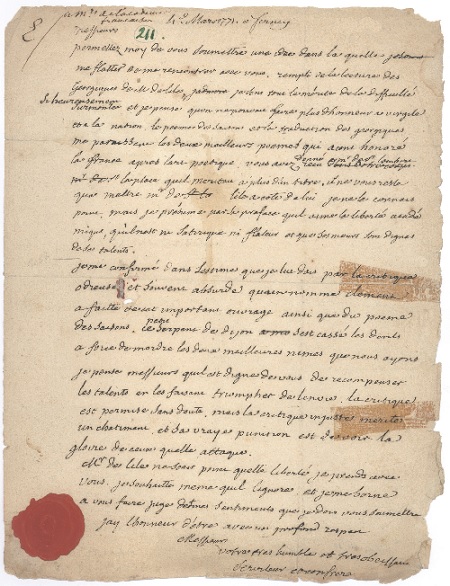 a mrs de l'academie
francaise 4e Mars 1771 a ferney
211
Messieurs
permettez moy de vous soumettre une idée dans la quelle j'ose
me flatter de me rencontrer avec vous. rempli de la lecture des
Georgiques de Mr de Lile, je sens tout le prix de la difficulté
si heureusement
surmontée et je pense qu'on ne pouvait faire plus d'honneur a virgile
et a la nation. le poeme des saisons et la traduction des georgiques
me paraissent les deux meilleurs poemes qui aient honoré
la france apres l'art poetique. vous avez donné a mr de st lambert
la place qu'il meritait a plus d'un titre, il ne vous reste
qu'a mettre mr de lile a coté de lui. je ne le connais
point, mais je presume par sa preface qu'il aime la liberté acadé
mique, qu'il n'est ni satirique ni flateur et que ses mœurs sont dignes
de ses talents.
je me confirme dans l'estime que je lui dois par la critique
odieuse et souvent absurde qu'un nommé clement
a faitte de cet important ouvrage ainsi que du poeme
des saisons. ce petit serpent de dijon s'est cassé les dents
a force de mordre les deux meilleures limes que nous ayons
je pense messieurs qu'il est digne de vous de recompenser
les talents en les faisant triompher de l'envie. la critique
est permise sans doute, mais la critique injuste merite
un chatiment, et sa vraye punition est de voir la
gloire de ceux quelle attaque.
Mr de lile ne sait point quelle liberté je prends avec
vous. je souhaitte meme qu'il l'ignore, et je me borne
a vous faire juges de mes sentiments que je dois vous soumettre
j'ay l'honneur d'etre avec un profond respect
Messieurs
votre tres humble et tres obeissant
serviteur et confrere